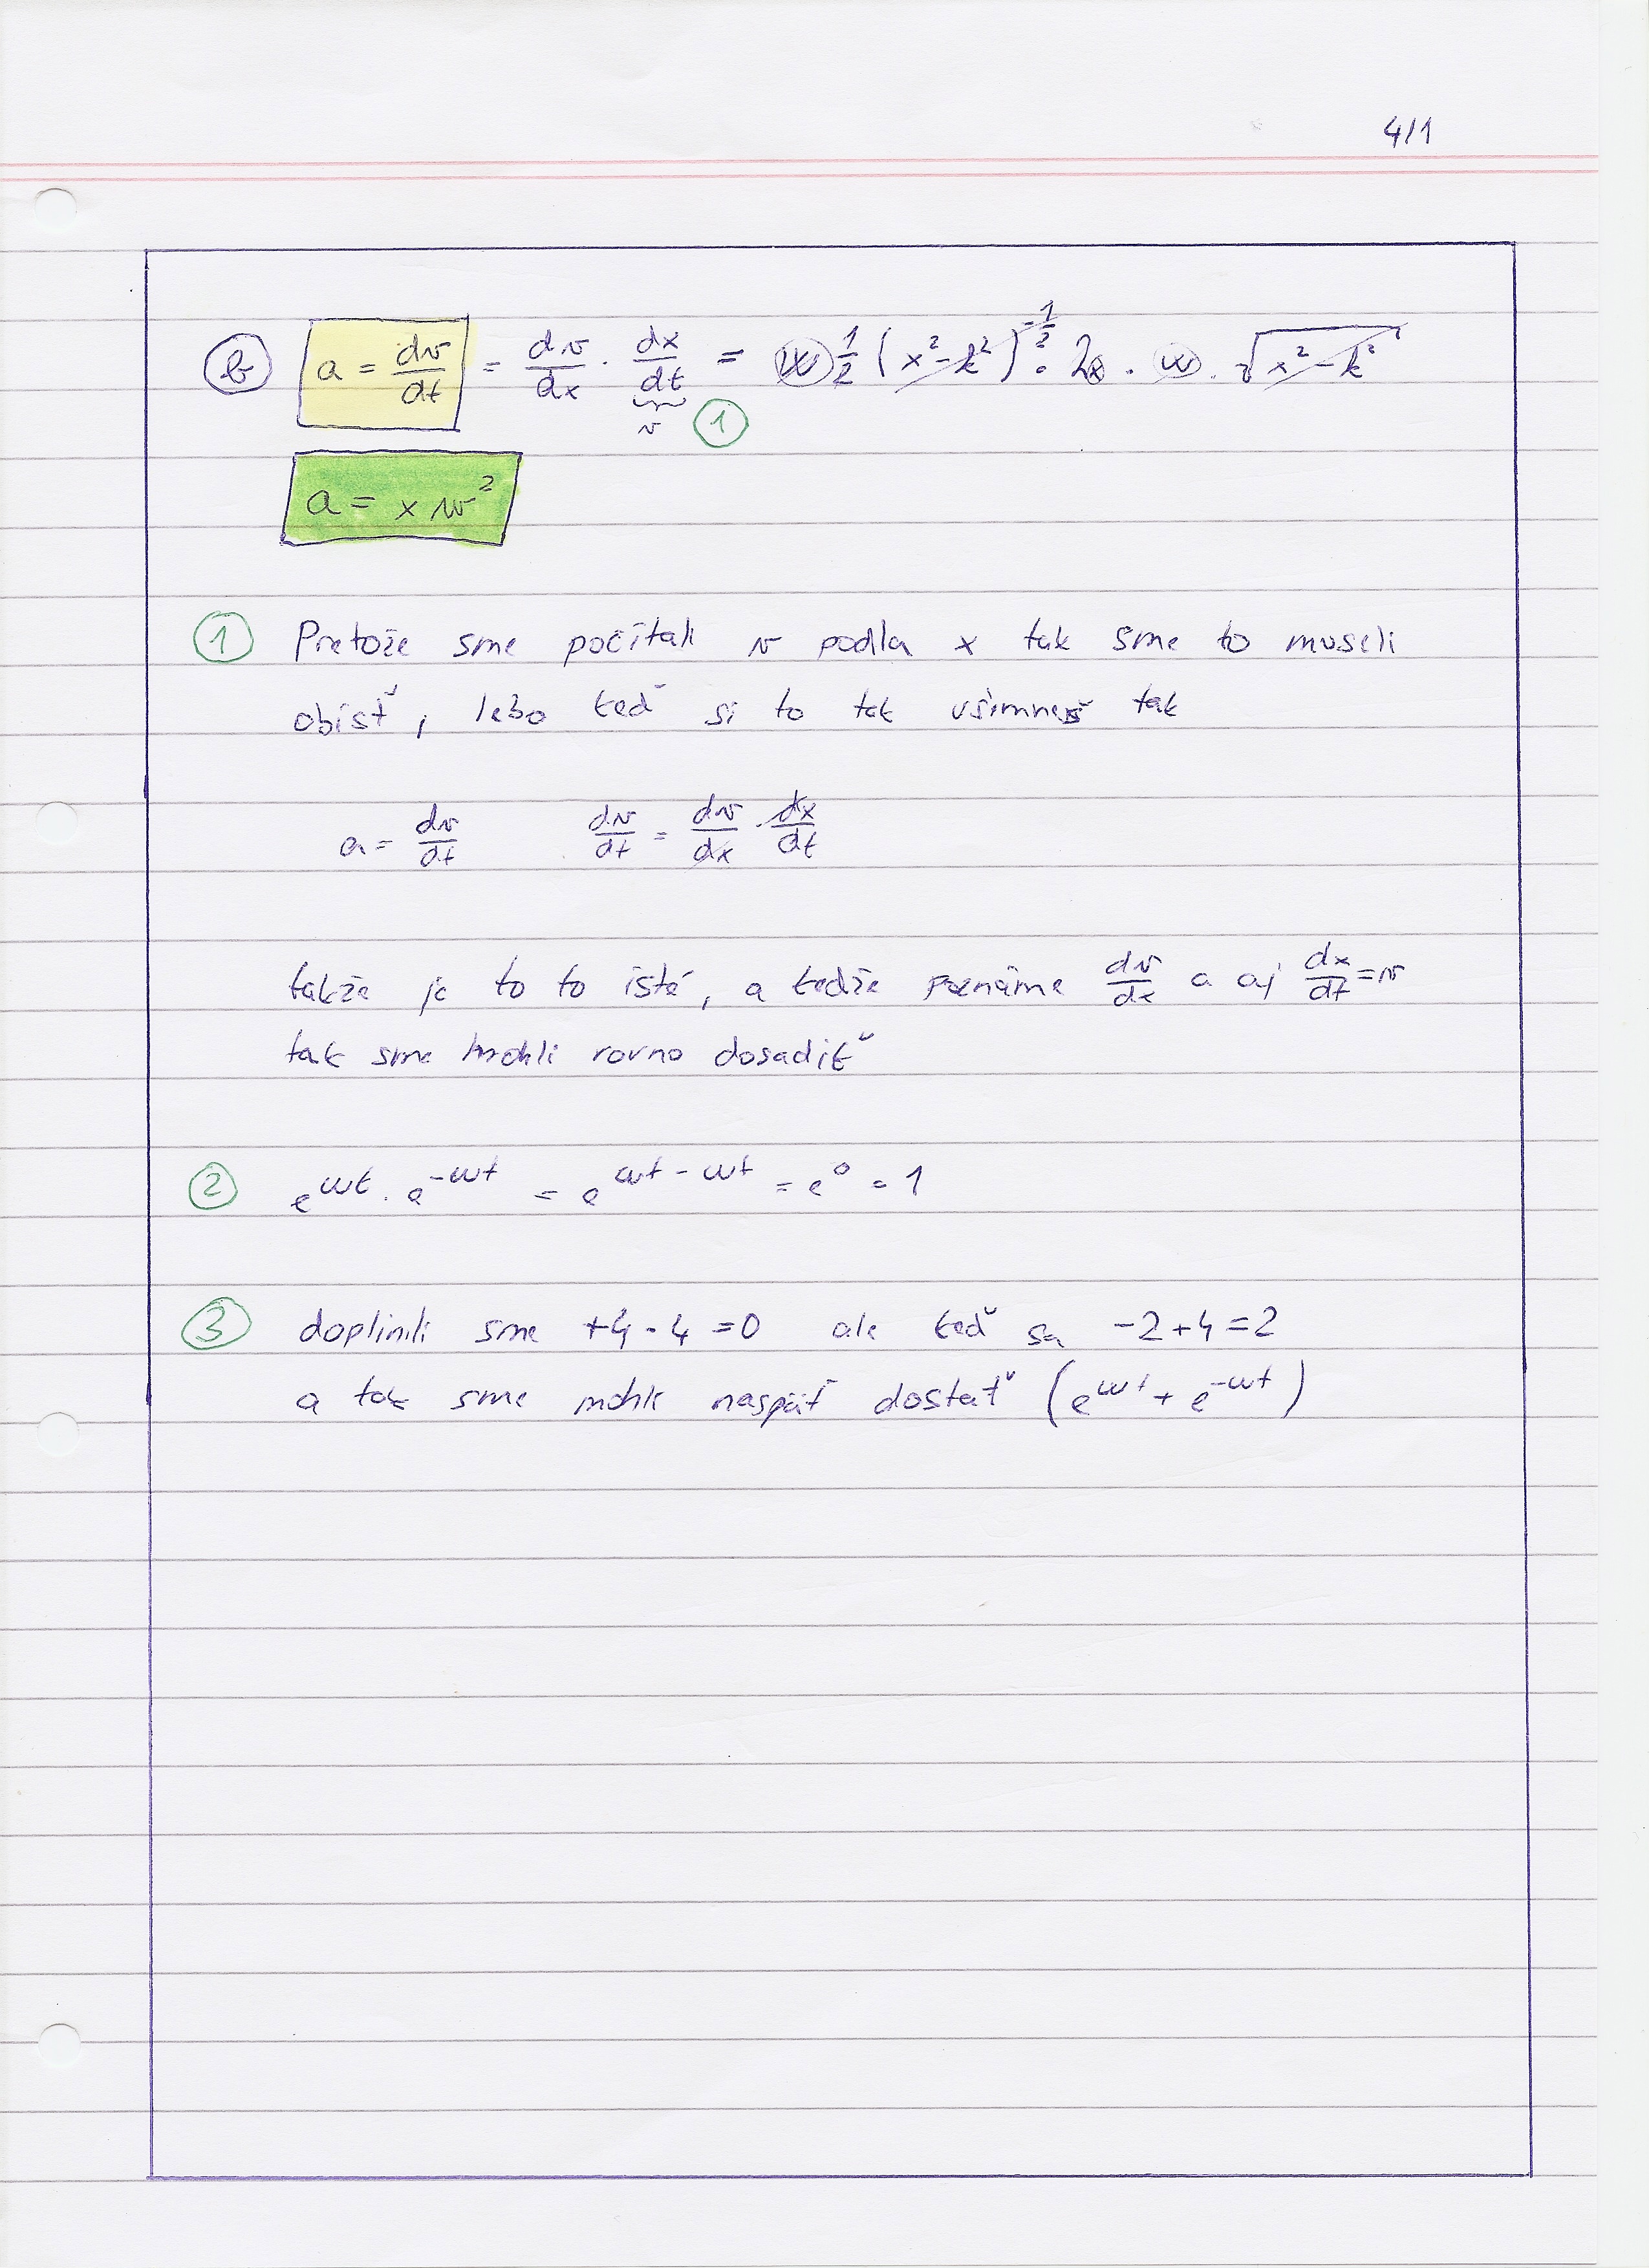 4/1
b a = dv/dt = dv/dx · dx/dt = w 1/2 (x² - k²)^-1/2 · 2x · w · √(x² - k²)
v 1
a = x w²
1 Pretože sme počítali v podla x tak sme to museli
obísť, lebo keď si to tak všimneš tak
a = dv/dt dv/dt = dv/dx · dx/dt
takže je to to isté, a kedže poznáme dv/dx a aj dx/dt = v
tak sme mohli rovno dosadiť
2 e^ωt · e^-ωt = e^ωt - ωt = e^0 = 1
3 doplnili sme +4 - 4 = 0 ale keď sa -2 + 4 = 2
a tak sme mohli naspäť dostať (e^ωt + e^-ωt)